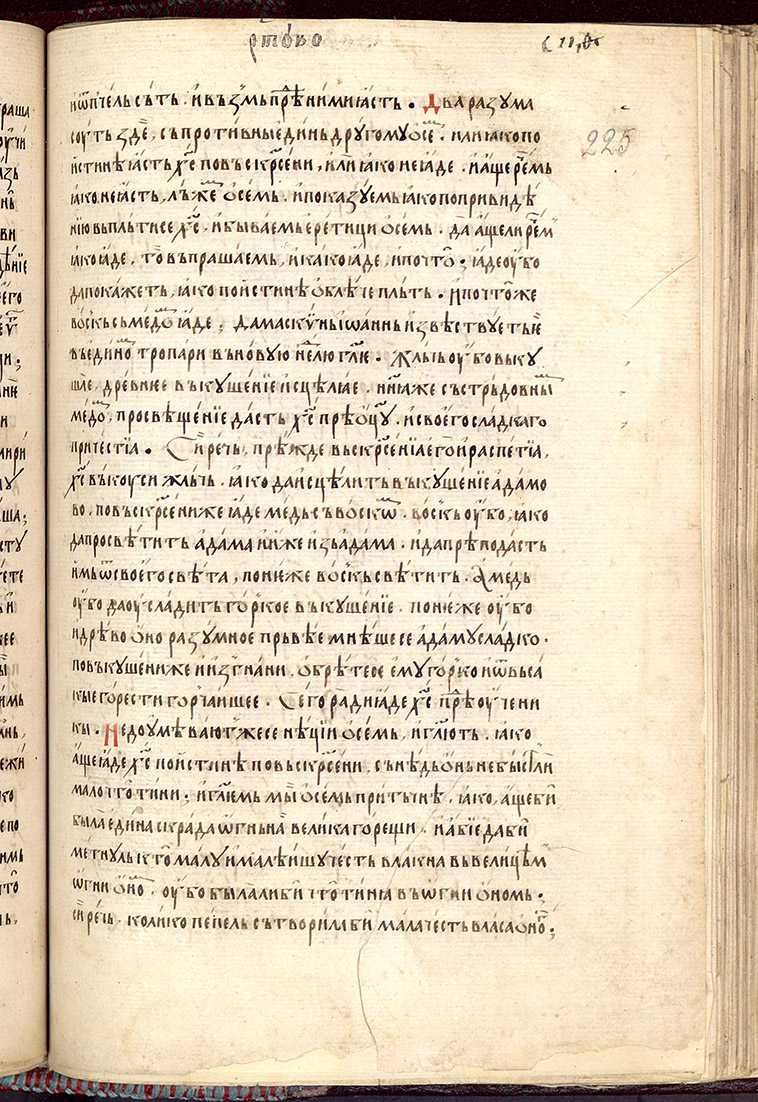 ртово
225
и҆ѿпчель сътъ. и҆възⸯмь прѣⷣ ними ꙗ҆стъ. Два разꙋма
соу́тъ здѐ, съпроти́вны є҆ди́нь дрꙋго́мꙋ ѡ҆ семъ. и҆ли ꙗ҆ко по
и҆стинѣ ꙗ҆стъ хс҃ повъскр҃се́ни, и҆лѝ ꙗ҆ко не ꙗ҆́де. и҆ а҆́ще рче́мь
ꙗ҆ко не ꙗ҆стъ, лъже́мь ѡ҆ семь. и҆ показꙋ́емь ꙗ҆ко попривидѣ́
нїю въплъти се хс҃. и҆ быва́емь є҆ре́тици ѡ҆ семь. да а҆́ще ли рче́мь
ꙗ҆ко ꙗ҆́де, то̀ въпраша́емь, и҆ ка́ко ꙗ҆́де, и҆ почто̀; ꙗ҆́де оу҆́бо
да пока́жетъ, ꙗ҆ко пои҆стинѣ ѡ҆блѣ́че плъть. и҆ почто́же
во́скъ сьме́домь ꙗ҆́де; Дамаскⷩ҇ы і҆ѡа́ннь и҆звѣствꙋ́етъ сѐ
въ є҆ди́номь тропари въ но́вꙋю недⷧ҇ю гл҃ѥ. Жлъчь оу҆́бо въкꙋ
ша́е, дре́внѥе въкꙋше́нїе и҆сцѣлꙗ́е. нн҃ꙗже съ стръдовны́мь
ме́домь, просвѣще́нїе дасть хс҃ прѣѡ҆ц҃ꙋ. и҆ своѐго сла́дкаго
приче́стїа. Си́речь, прѣ́жде въскр҃се́нїа є҆го̀ и҆ распе́тїа,
хс҃ въкꙋси жлъчь. ꙗ҆ко да и҆сцѣли́тъ въкꙋше́нїе а҆да́мо
во. по въскр҃се́ниже ꙗ҆́де ме́дь съ во́скѡмь. во́скъ оу҆́бо, ꙗ҆ко
да просвѣ́титъ а҆да́ма и҆ и҆́же и҆зьа҆да́ма. и҆ да прѣпода́стъ
и҆мь ѿ свое́го свѣ́та, поне́же во́скъ свѣтитъ. А҆ медь
оу҆́бо да оу҆слади́тъ го́рⸯкое въкꙋше́нїе. поне́же оу҆́бо
и҆ дрѣ́во ѡ҆но̀ разꙋ́мное пръвѣ́е мнѣ́ше се а҆да́мꙋ сла́дко.
по въкꙋше́ниже и҆ и҆згна́ни, ѡ҆брѣ́те се є҆мꙋ го́рⸯко и҆ ѿ въса́
кые го́рести горⸯча́ишее. Сего̀ ра́ди ꙗ҆́де хс҃ прѣⷣ оу҆чени
кы. Недоꙋмѣва́ютⸯже се нѣ́ции ѡ҆ семь, и҆ гл҃ютъ. ꙗ҆ко
а҆́ще ꙗ҆́де хс҃ пои҆стинѣ по въскр҃се́ни, сънѣдь ѡ҆нь не бы́сть ли
мало что̀ ти́ни; и҆ гл҃емь мы̀ ѡ҆ семь при́тъчнѣ. ꙗ҆ко, а҆́ще бѝ
была̀ є҆ди́на скра́да ѡ҆́гньна вели́ка горе́щи. и҆ а҆́бїе да бѝ
метнꙋль кто̀ малꙋ и҆ малѣи́шꙋ че́сть влакна въ вели́цѣмь
ѡ҆гни ѡ҆но́мь. оу҆́бо была́ ли бѝ что̀ тинꙗ въ ѡ҆гни ѡ҆номь;
си́ речь. коли́ко пе́пель сътвори́ла бѝ ма́ла че́сть вла́са ѡ҆ного;